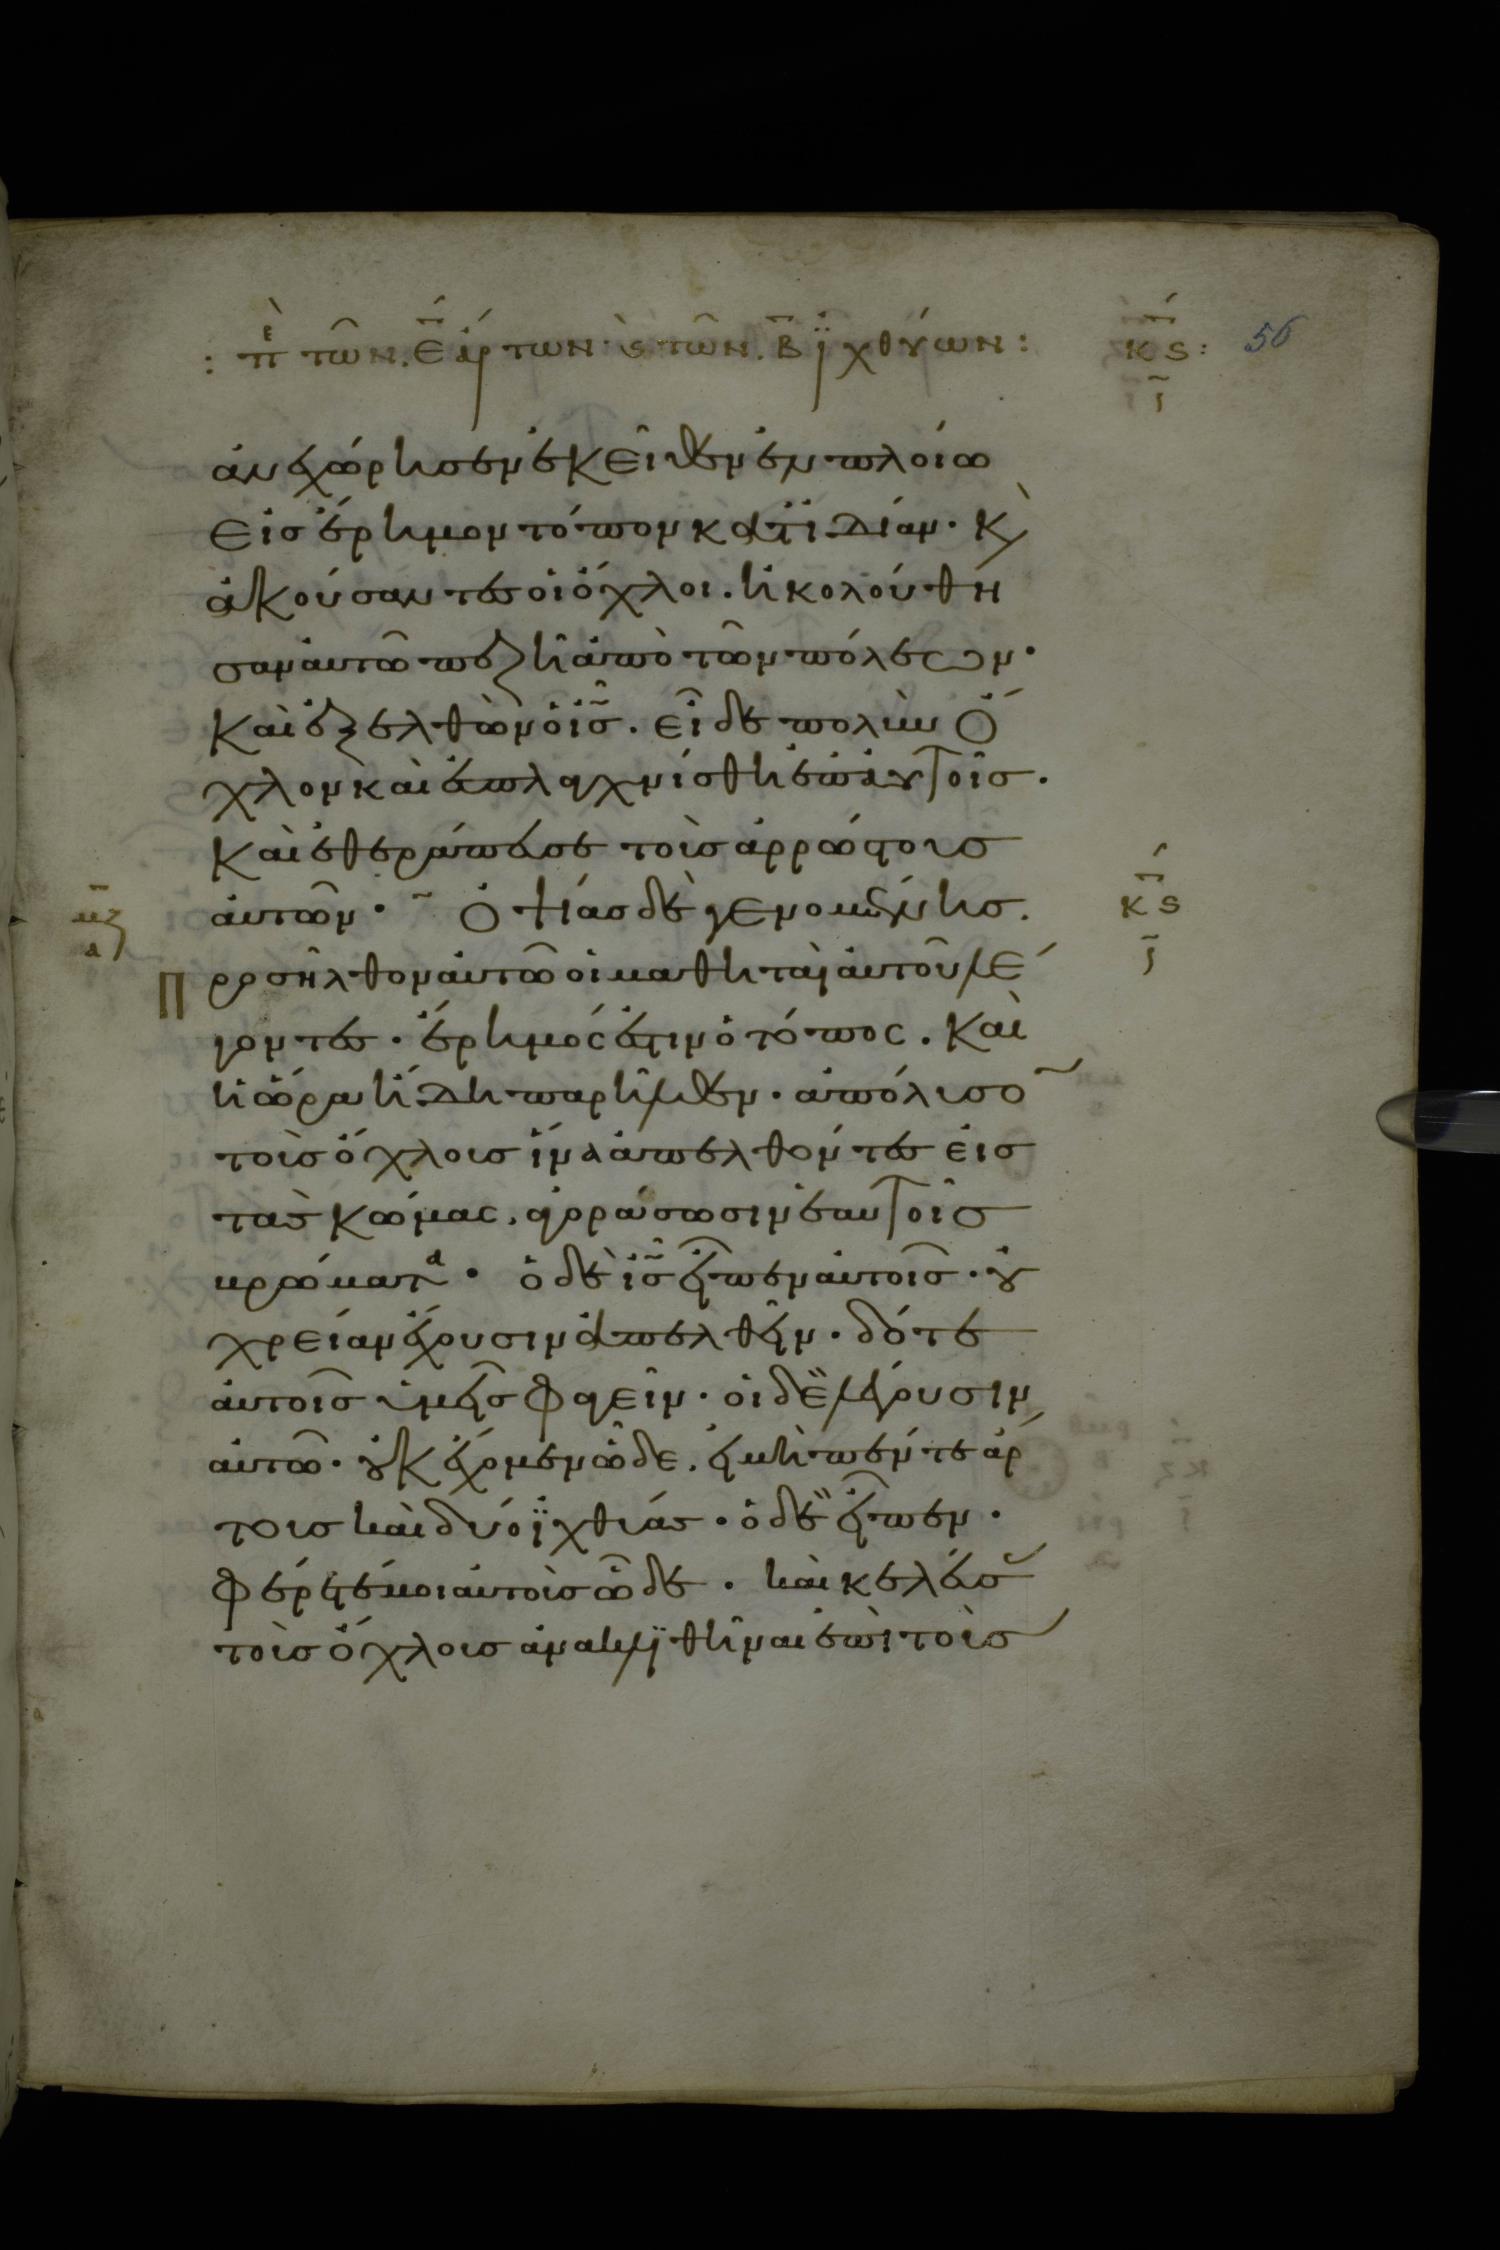 : πε τῶν. ε̄ ἄρτων ϛ τῶν. β̄ ϊχθύων : κϛ : 56
ῑ
ἀνεχώρησεν ἐκεῖθεν ἐν πλοίω
εἰσ ἔρημον τόπον κατ ϊδίαν · κ
ἀκούσαντεσ οἱ ὄχλοι . ἠκολούθη
σαν αὐτῶ πεζῆ ἀπὸ τῶν πόλεων ·
Καὶ ἐξελθὼν ὁ ι̅σ̅ . εἶδε πολὺν ὄ
χλον καὶ ἐσπλαχνίσθη ἐπ αὐτοῖσ .
Καὶ ἐθεράπευσε τοὺσ ἀρρώστουσ
αὐτῶν · Ὀψίασ δὲ γενομένησ . κϛ
ῑ
μζ
α
Προσῆλθον αὐτῶ οἱ μαθηταὶ αὐτοῦ λέ
γοντεσ · ἔρημός ἐστιν ὁ τόπος . Καὶ
ἡ ὥρα ἤδη παρῆλθεν · ἀπόλυσο
τοὺσ ὄχλουσ ἵνα ἀπελθόντεσ εἰσ
τὰσ κώμας . ἀγοράσωσιν ἑαυτοῖσ
βρώματα · ὁ δὲ ι̅σ̅ εἶπεν αὐτοῖσ · οὐ
χρείαν ἔχουσιν ἀπελθεῖν · δότε
αὐτοῖσ ὑμεῖσ φαγεῖν · οἱ δὲ λέγουσιν
αὐτῶ · οὐκ ἔχομεν ὧδε . εἰ μὴ πέντε ἄρ
τουσ καὶ δύο ϊχθύασ · ὁ δὲ εἶπεν ·
φέρετέ μοι αὐτοὺσ ὧδε · καὶ κελεύσ
τοὺσ ὄχλουσ ἀνακλϊθῆναι ἐπὶ τοὺσ